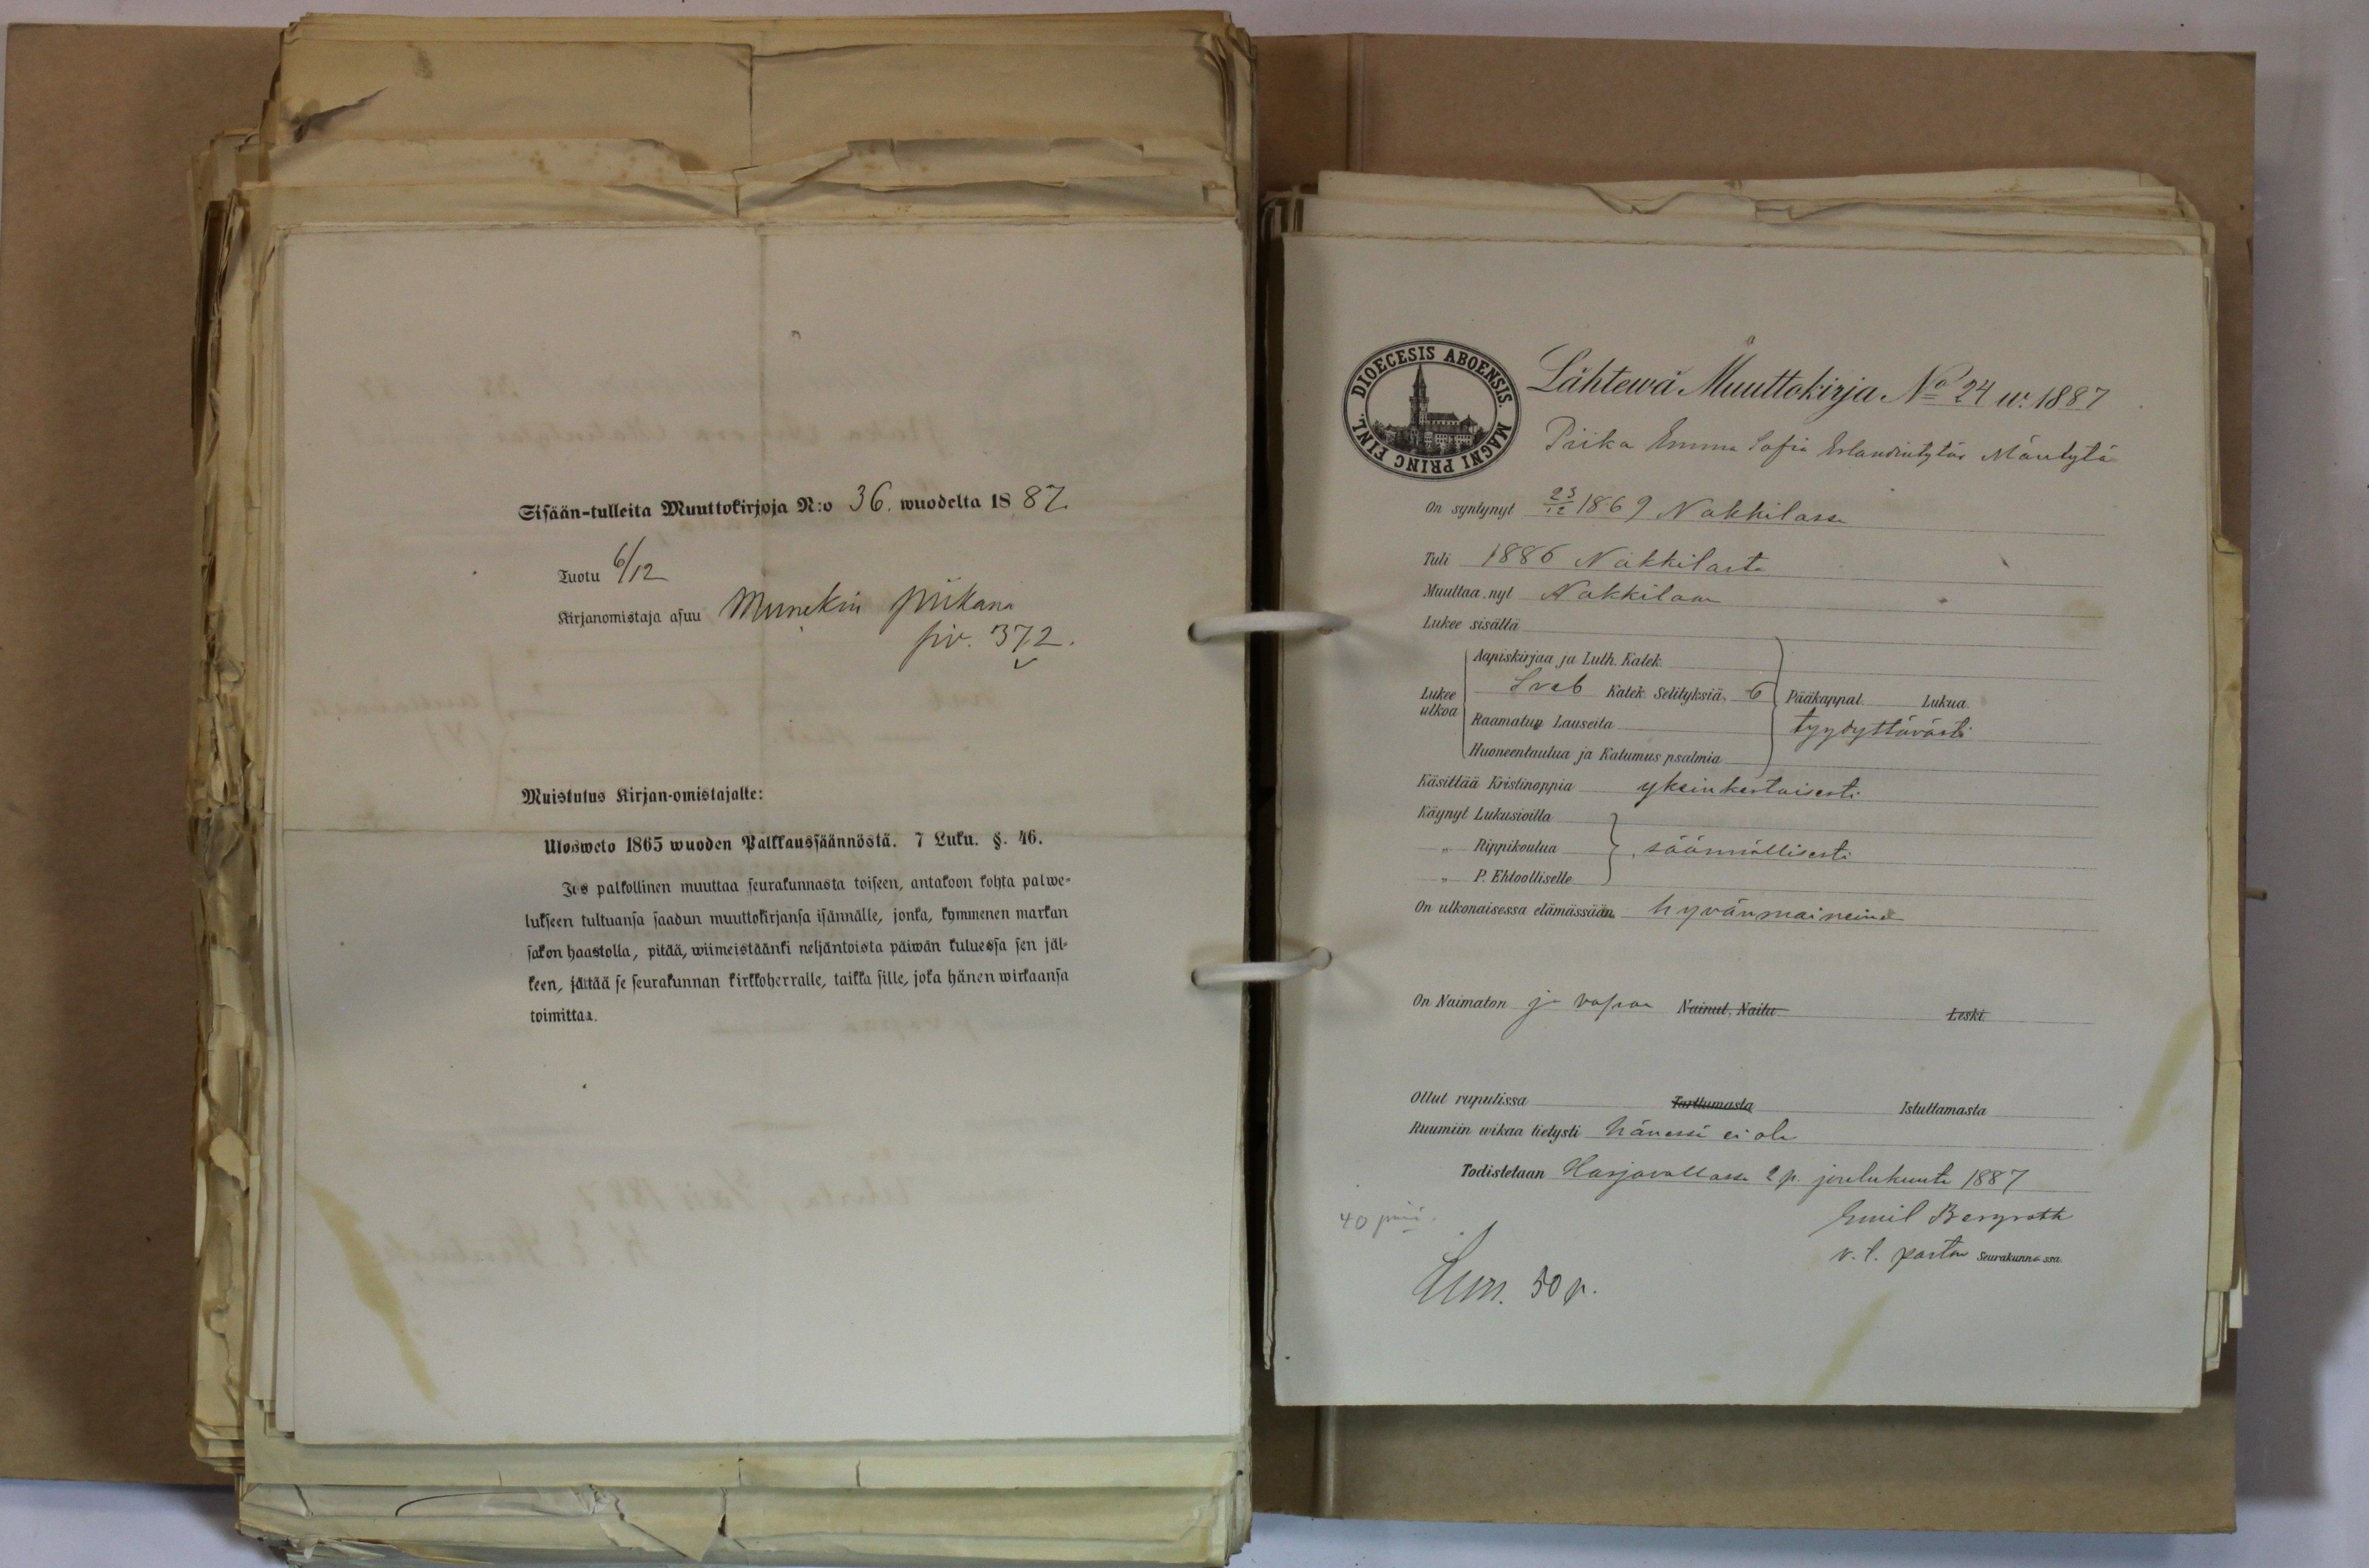 Sisään-tulleita Muuttokirjoja N:o 36. wuodelta 1887.
Tuotu 6/12
Kirjanomistaja asuu Munekin piikana
siv. 372.
Muistutus Kirjan-omistajalle:
Ulosweto 1865 wuoden Palkkaussäännöstä. 7 Luku. §. 46.
Jos palkollinen muuttaa seurakunnasta toiseen, antakoon kohta palwe-
lukseen tultuansa saadun muuttokirjansa isännälle, jonka, kymmenen markan
sakon haastolla, pitää, wiimeistäänki neljäntoista päiwän kuluessa sen jäl-
keen, jättää se seurakunnan kirkkoherralle, taikka sille, joka hänen wirkaansa
toimittaa.
DIOECESIS ABOENSIS. MAGNI PRINC FINL.
Lähtewä Muuttokirja No 24 w. 1887
Piika Emma Sofia Erlandintytär Mäntytä
On syntynyt 23/12 1869 Nakkilassa
Tuli 1886 Nakkilasta
Muuttaa nyt Nakkilaan
Lukee sisältä
Lukee ulkoa
Aapiskirjaa ja Luth. Katek.
Sveb Katek. Selityksiä, 6 Pääkappal. Lukua.
Raamatun Lauseita tyydyttävästi
Huoneentaulua ja Katumus psalmia
Käsittää Kristinoppia yksinkertaisesti
Käynyt Lukusioilla
„ Rippikoulua säännöllisesti
„ P. Ehtoolliselle
On ulkonaisessa elämässään hyvänmaineinen
On Naimaton ja vapaa Nainut. Naitu Leski.
Ollut rupulissa Tarttumasta Istuttamasta
Ruumiin wikaa tietysti hänessä ei ole
Todistetaan Harjavallassa 2 p. joulukuuta 1887
Emil Bergroth
v. t. pastori Seurakunnassa.
40 pni.
Lun. 50 p.